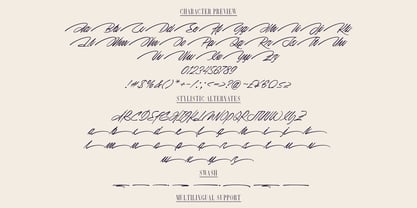 CHARACTER PREVIEW
Aa Bb Cc Dd Ee Ff Gg Hh Ii Jj Kk
Ll Mm Nn Oo Pp Qq Rr Ss Tt Uu
Vv Ww Xx Yy Zz
0123456789
STYLISTIC ALTERNATES
ABCDEFGHIJKLMNOPQRSTUVWXYZ
a b c d e f g h i j k
l m n o p q r s t u v
w x y z
SWASH
MULTILINGUAL SUPPORT